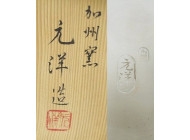 加州窯
元洋造
元洋